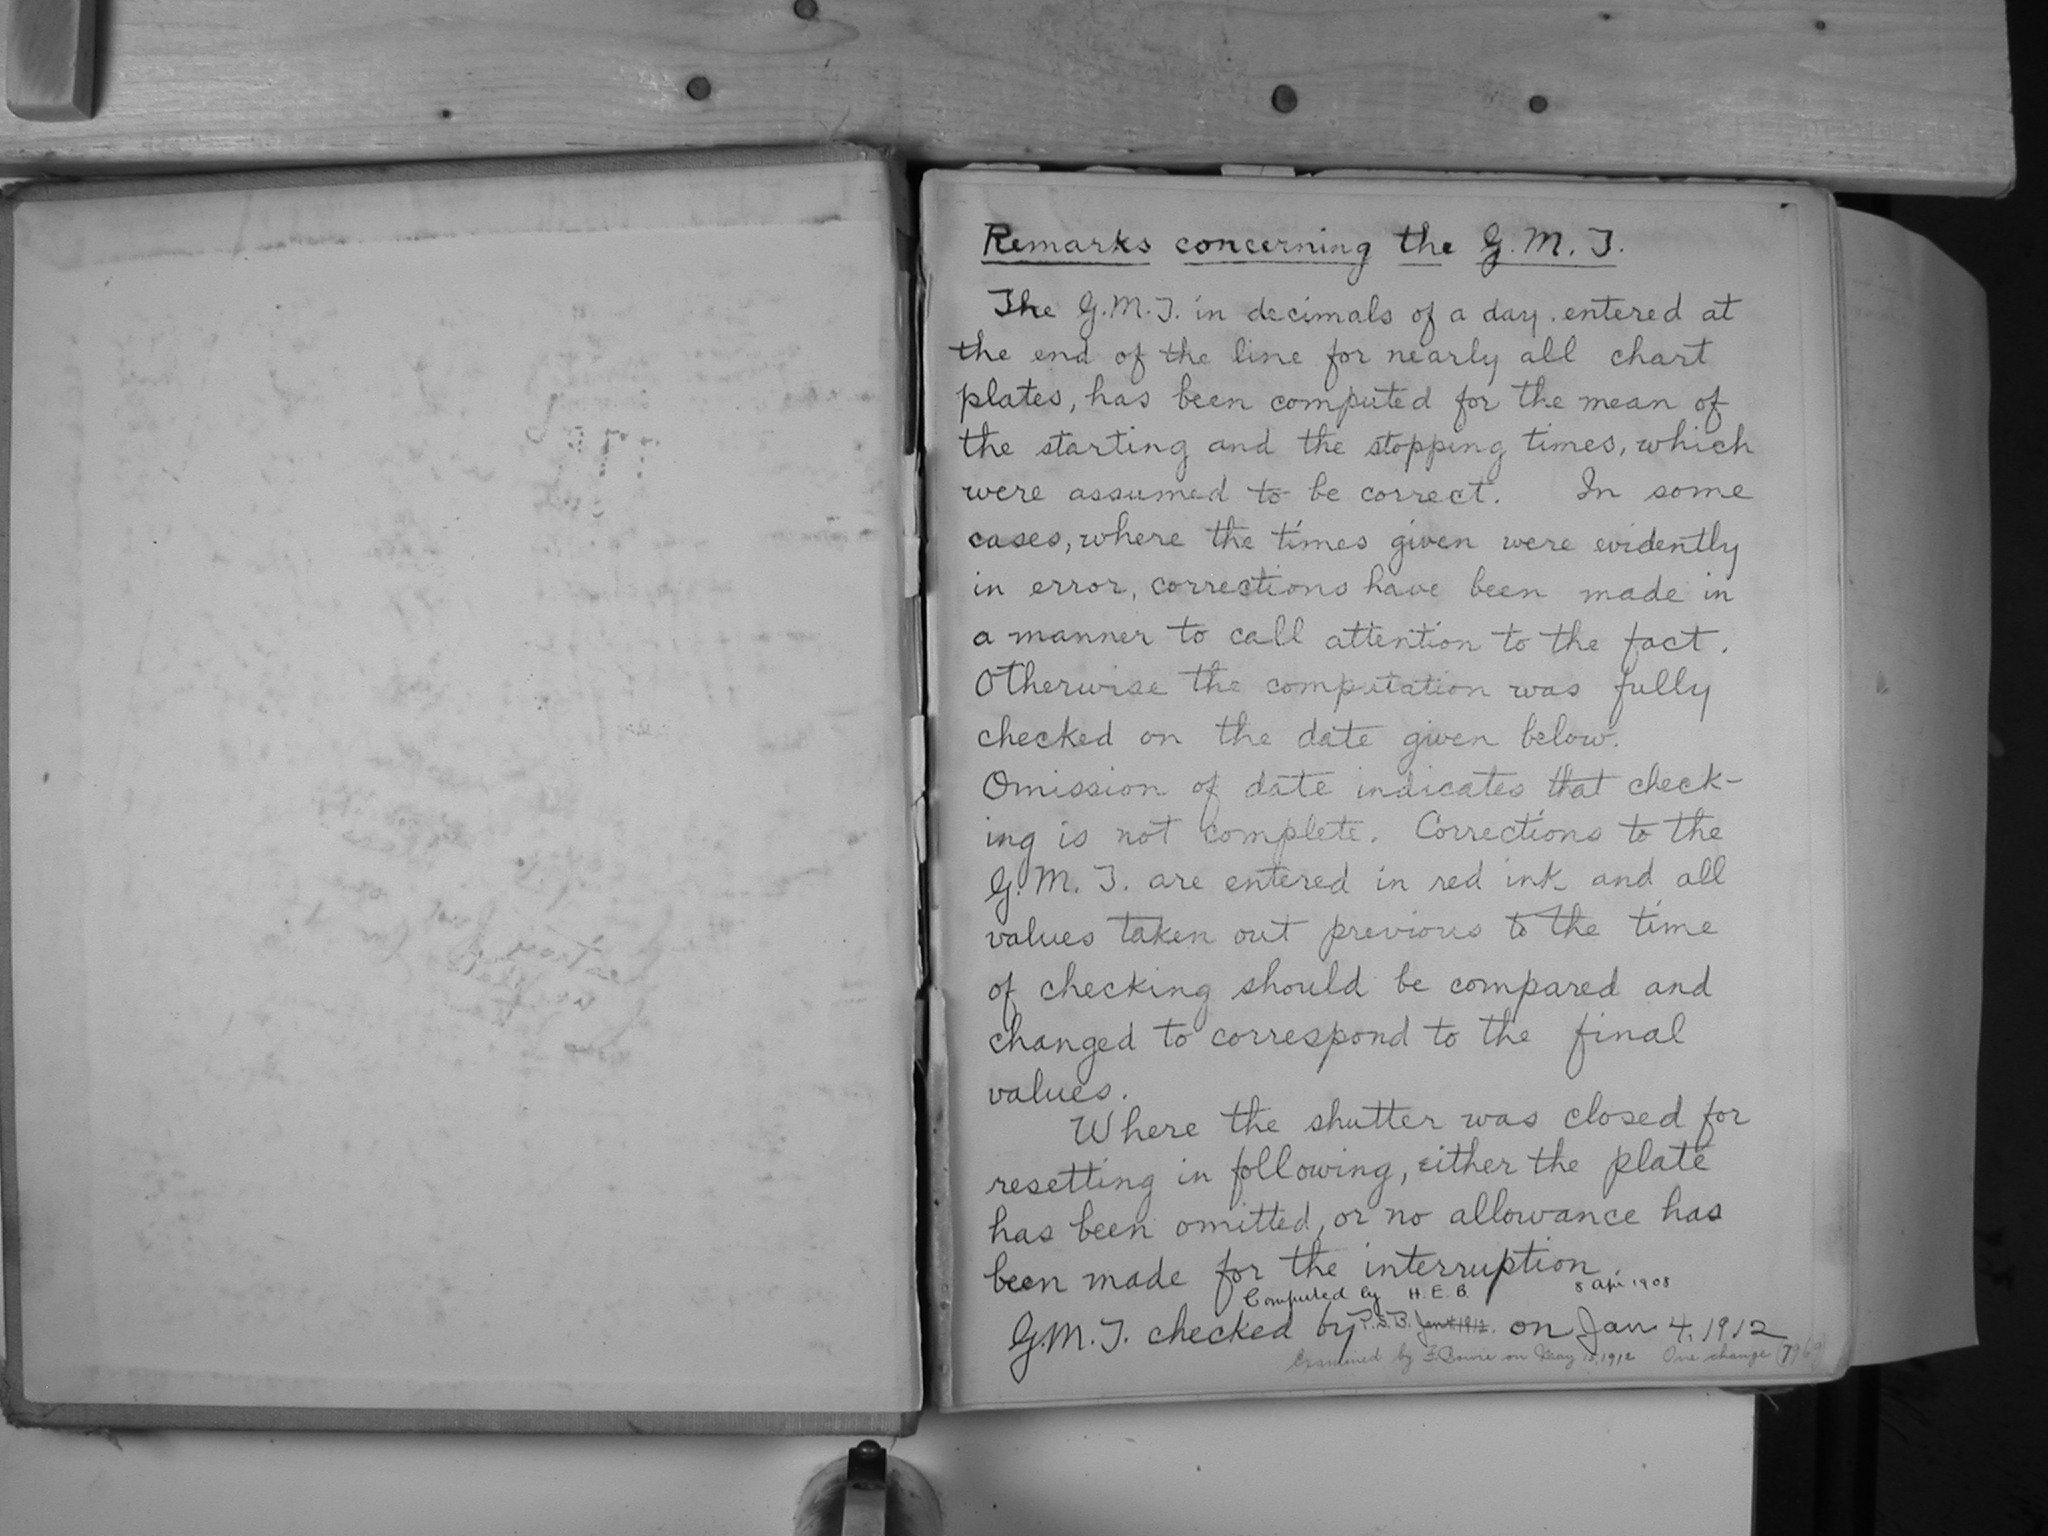 Remarks concerning the G.M.T.
The G.M.T. in decimals of a day entered at
the end of the line for nearly all chart
plates, has been computed for the mean of
the starting and the stopping times, which
were assumed to be correct. In some
cases, where the times given were evidently
in error, corrections have been made in
a manner to call attention to the fact.
Otherwise the computation was fully
checked on the date given below.
Omission of date indicates that check-
ing is not complete. Corrections to the
G.M.T. are entered in red ink and all
values taken out previous to the time
of checking should be compared and
changed to correspond to the final
values.
Where the shutter was closed for
resetting in following, either the plate
has been omitted, or no allowance has
been made for the interruption.
Computed by H.E.B. 8 Apr 1908
G.M.T. checked by P.S.B. on Jan 4, 1912
Examined by F. Bowie on May 15, 1912 One change